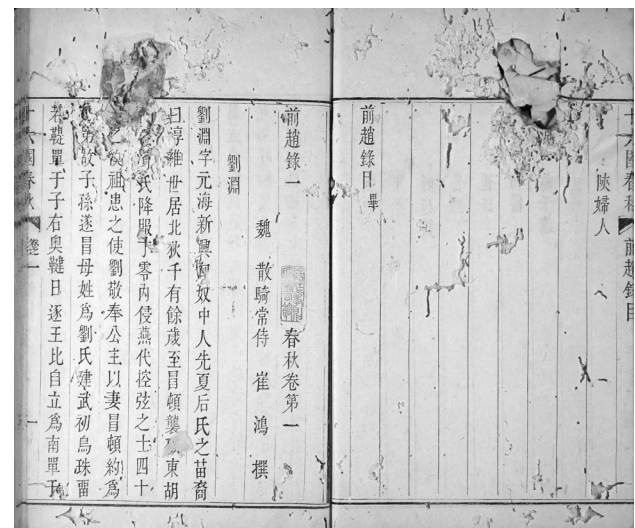 十六國春秋 前趙錄目
陝婦人
前趙錄目畢
前趙錄一 春秋卷第一
魏散騎常侍崔鴻撰
劉淵
劉淵字元海新興匈奴中人先夏后氏之苗裔
曰淳維世居北狄千有餘歲至冒頓襲破東胡
氏降服于零內侵燕代控弦之士四十
漢祖患之使劉敬奉公主以妻冒頓約爲
弟故子孫遂冒母姓爲劉氏建武初烏珠畱
若鞮單于子右奧鞬日逐王比自立爲南單于
十六國春秋 卷一 一